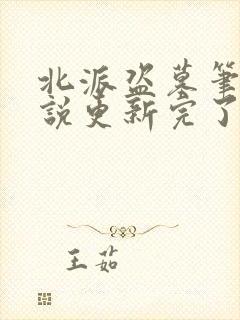 北派盗墓筆
說更新完了
王茹